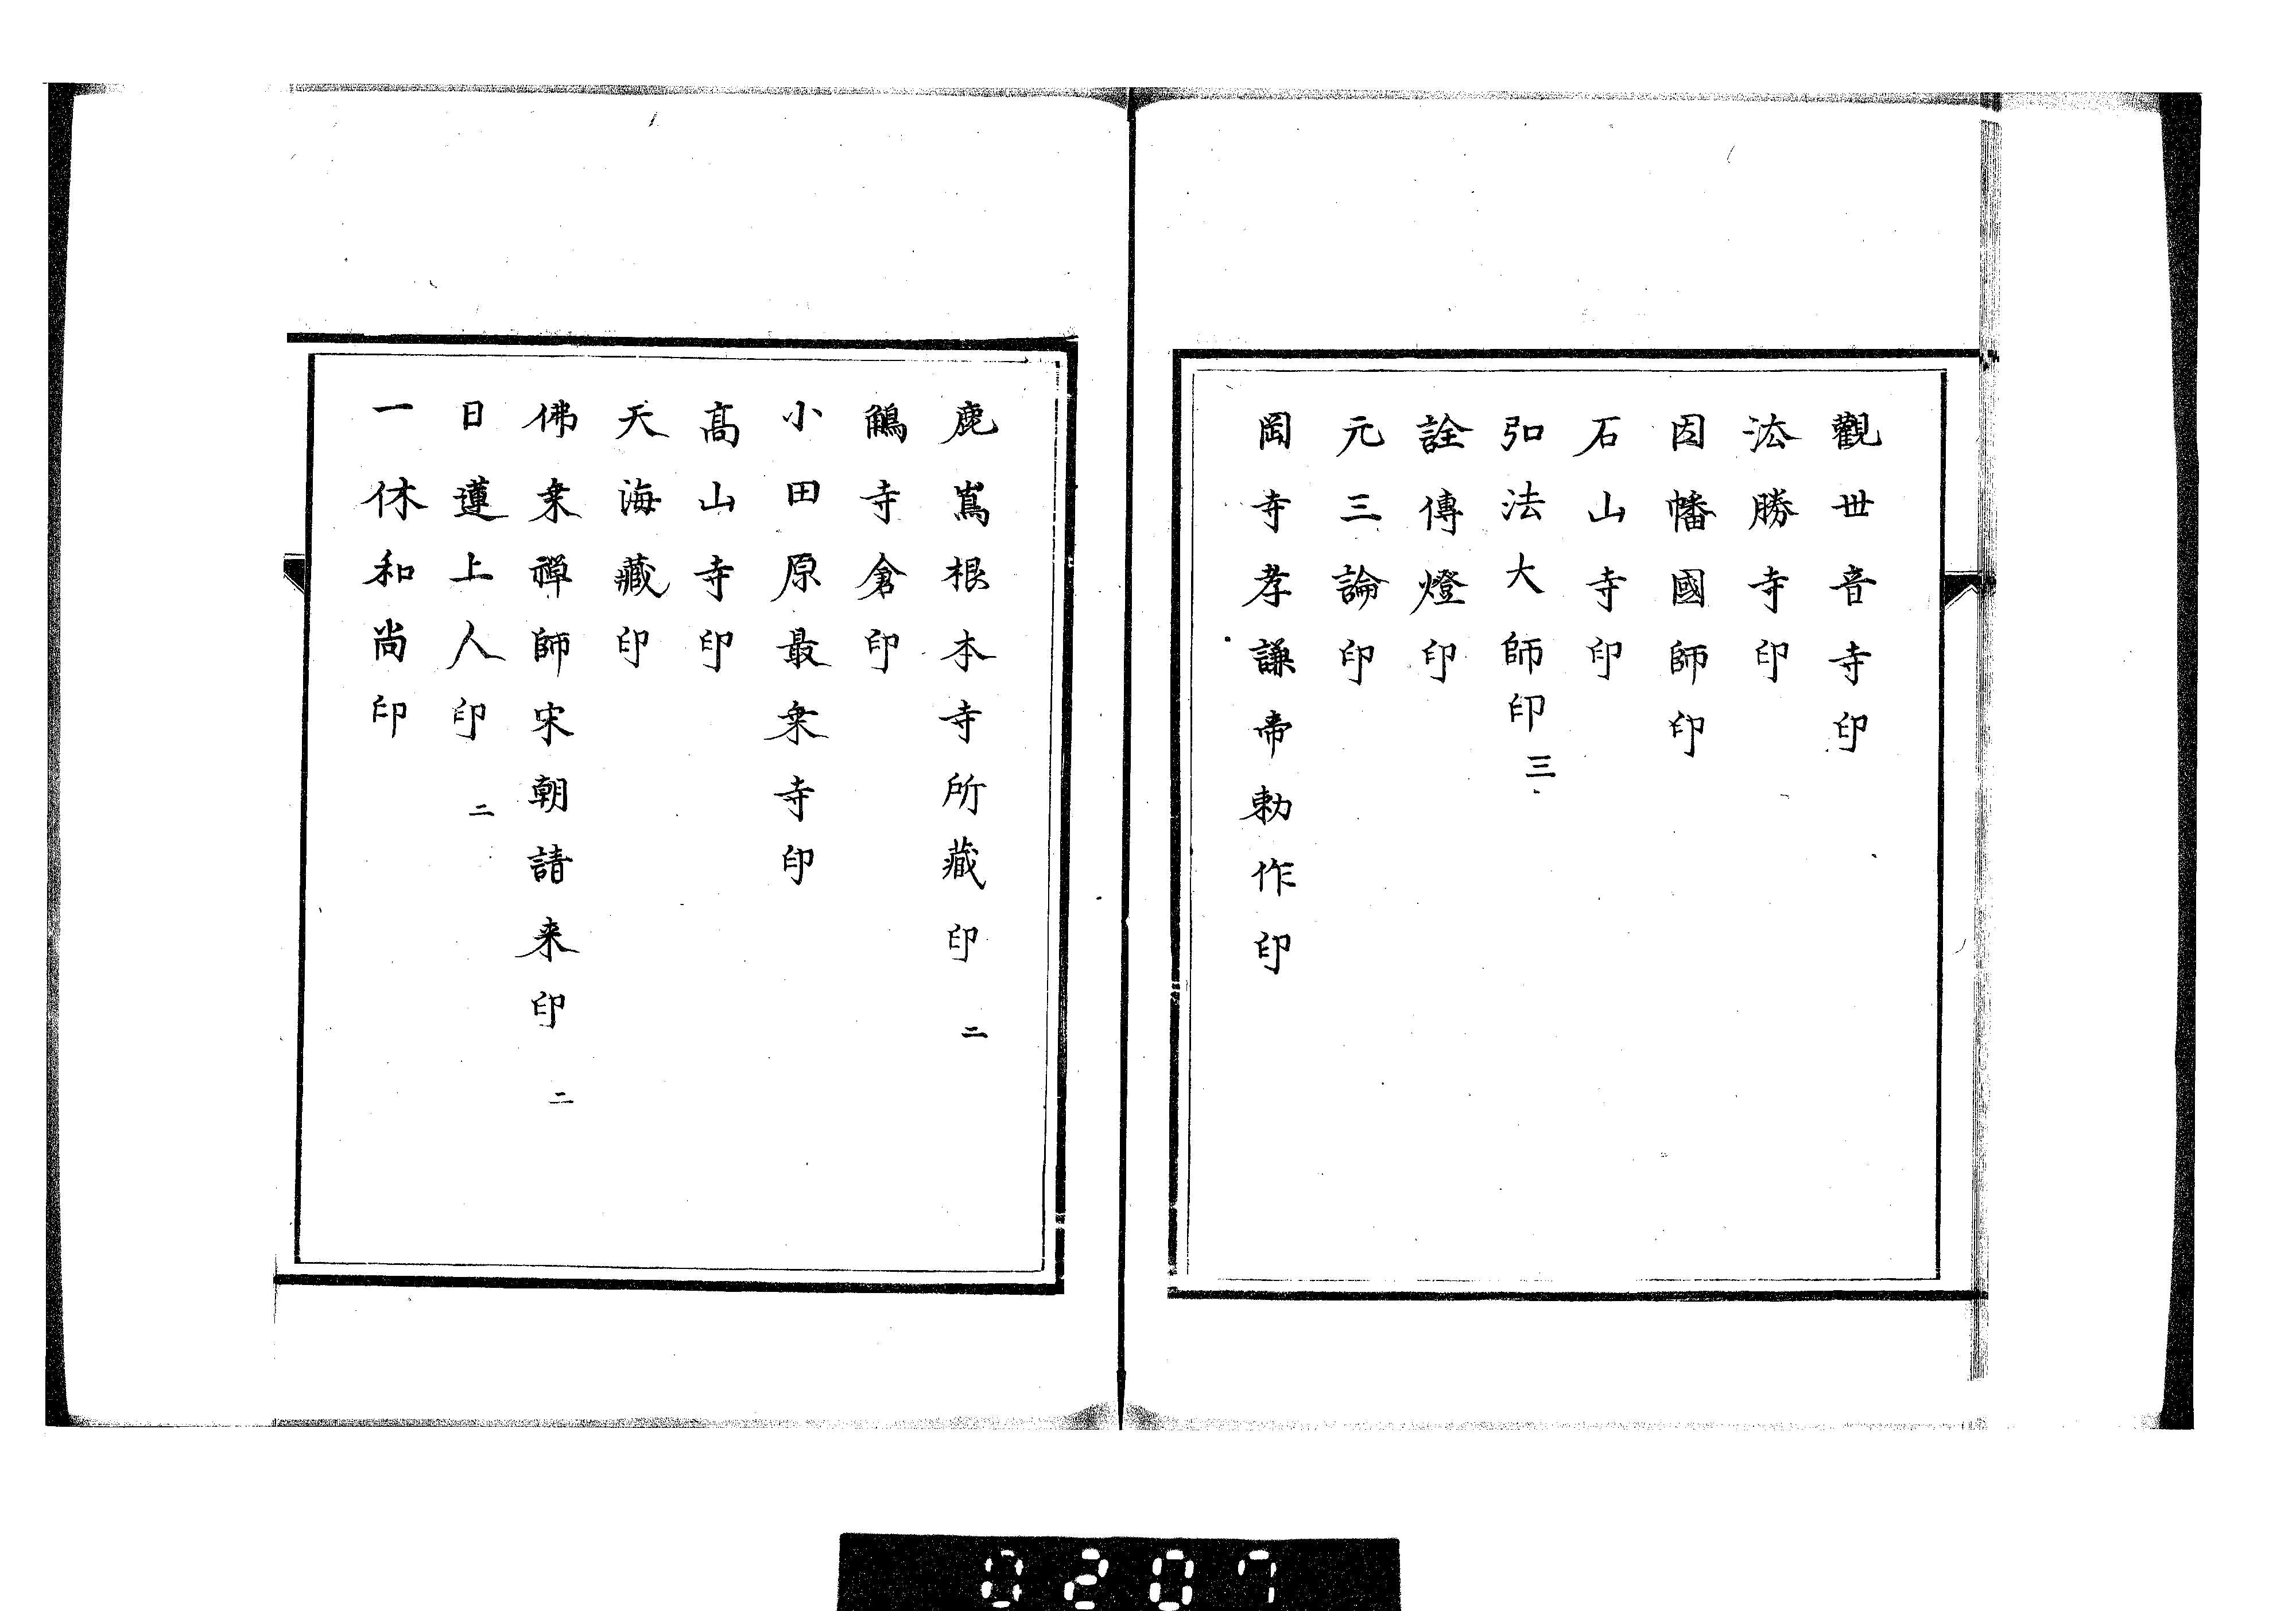 觀世音寺印
法勝寺印
因幡國師印
石山寺印
弘法大師印 三
詮傳燈印
元三論印
岡寺孝謙帝勅作印
鹿嶌根本寺所藏印 二
鵤寺倉印
小田原最乗寺印
高山寺印
天海藏印
佛乗禅師宋朝請来印 二
日蓮上人印 二
一休和尚印
0207